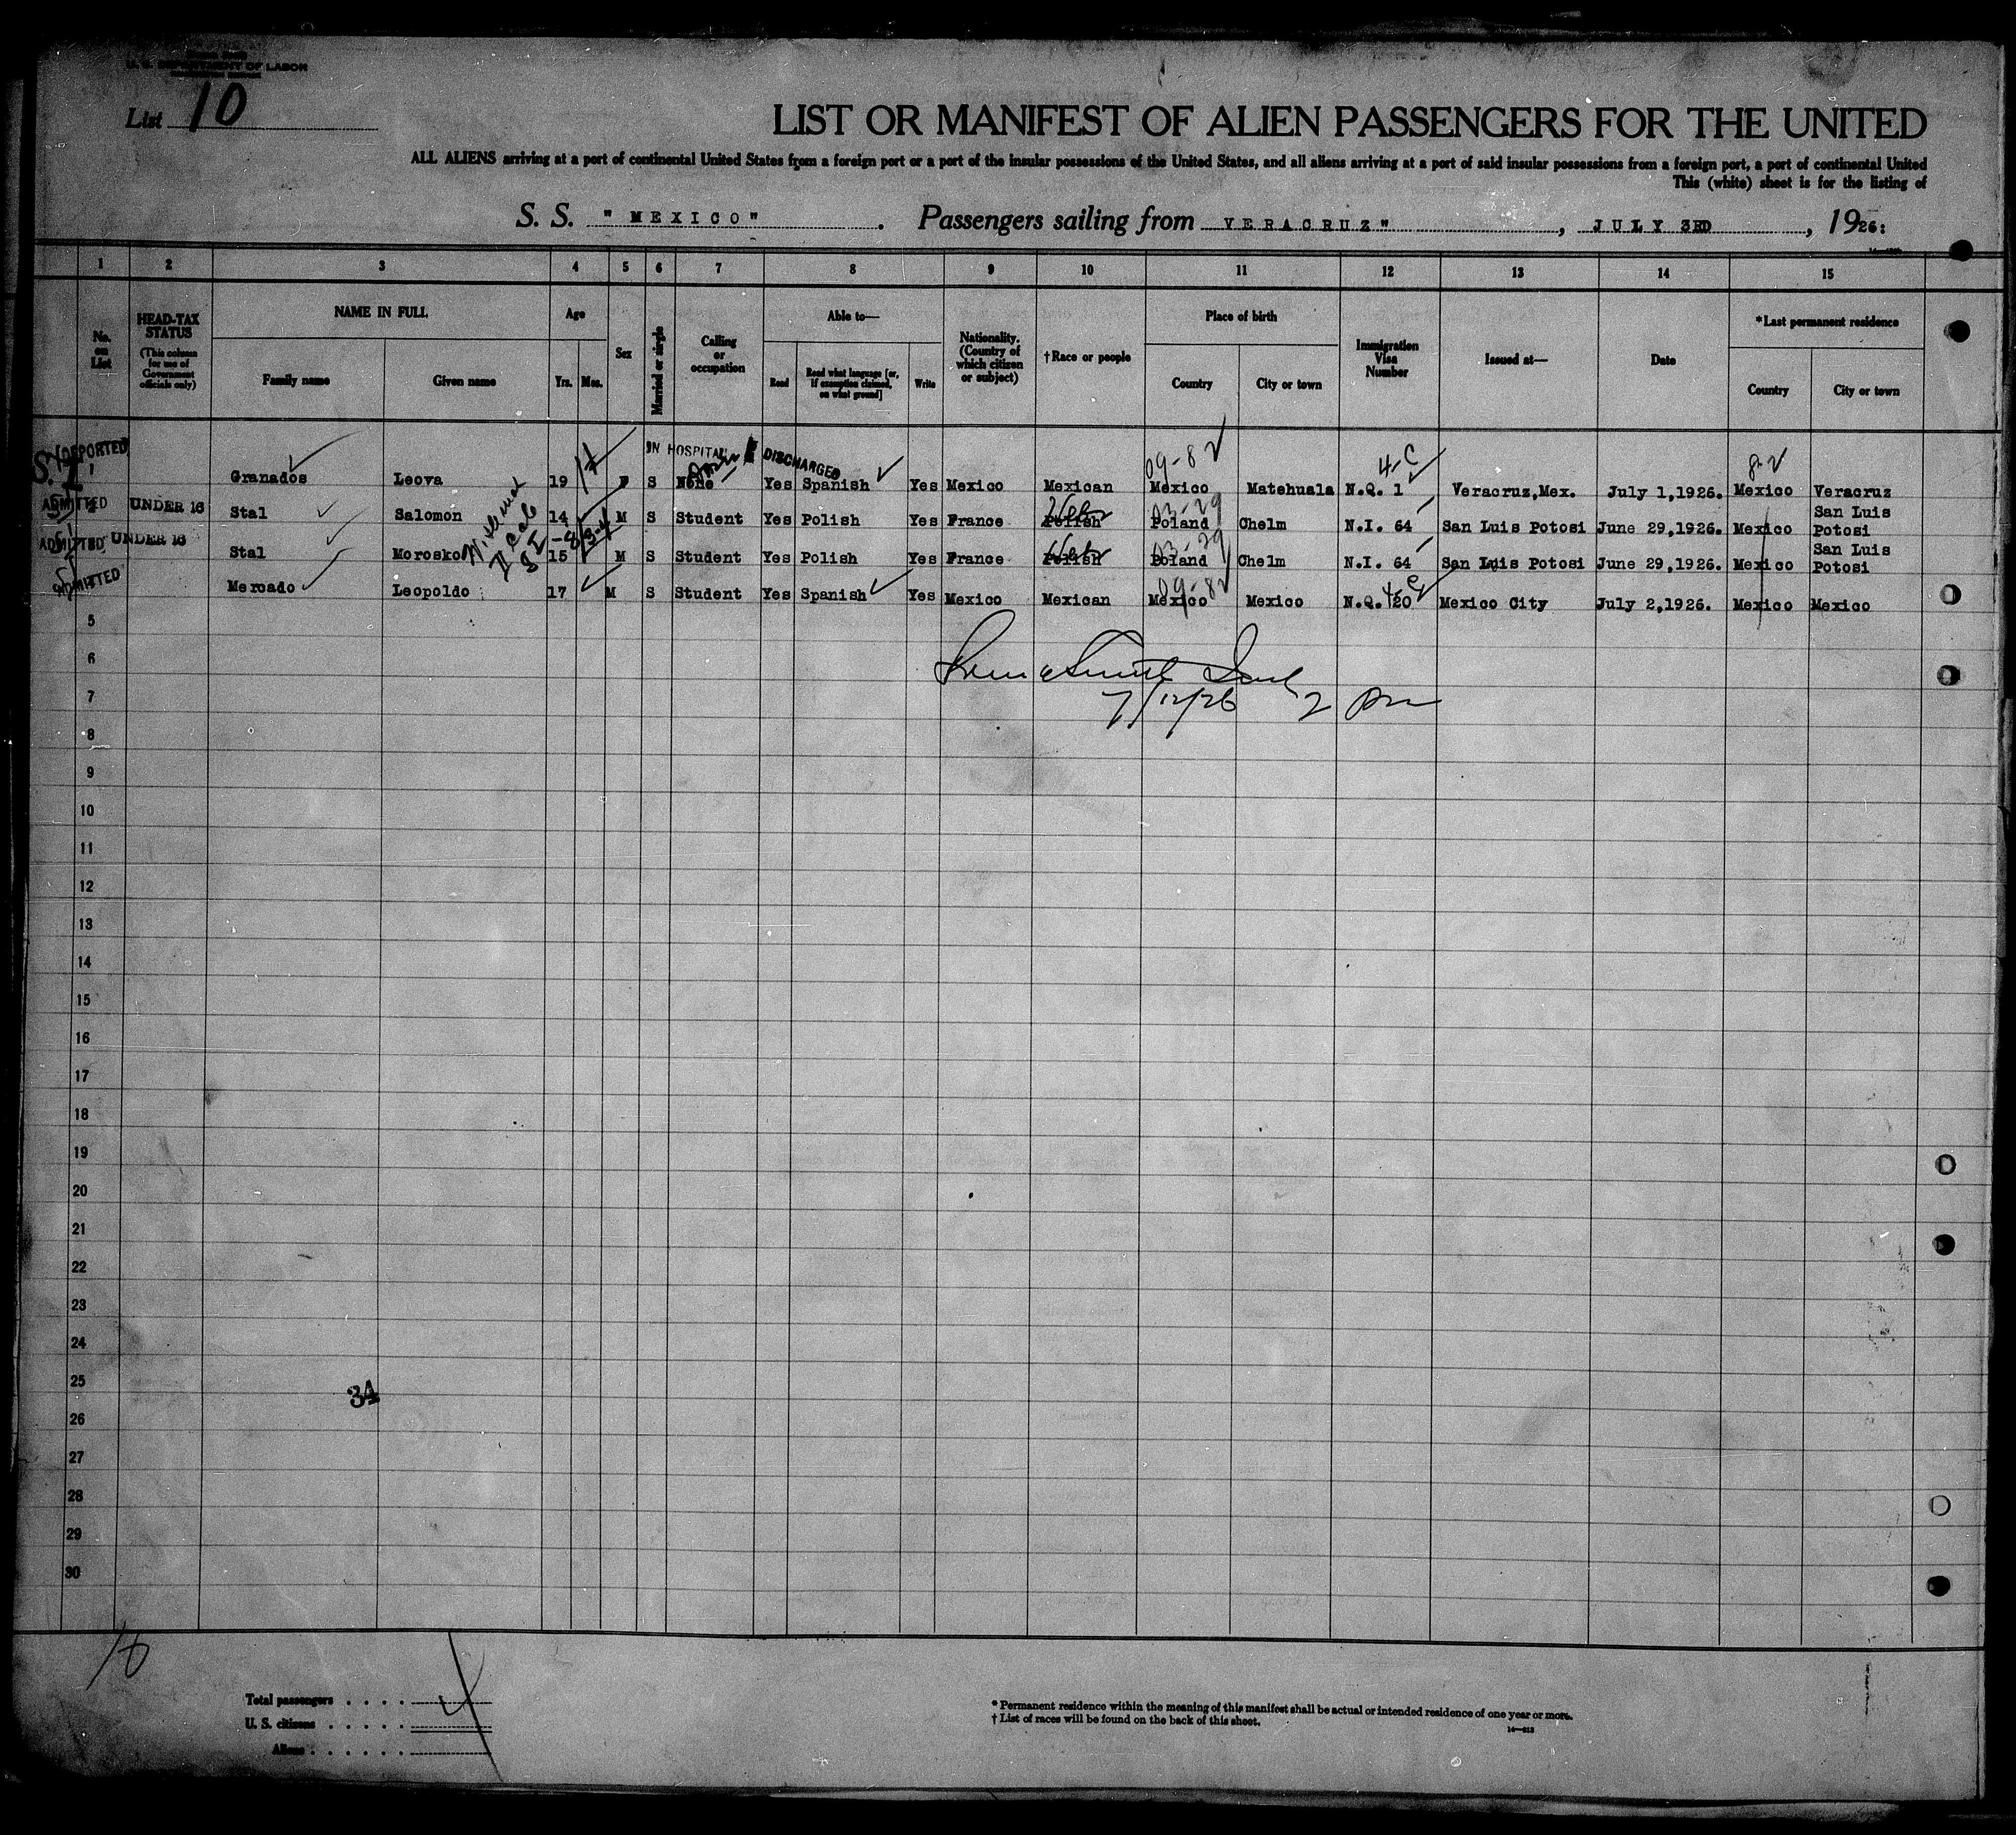 U. S. DEPARTMENT OF LABOR
List 10
LIST OR MANIFEST OF ALIEN PASSENGERS FOR THE UNITED
ALL ALIENS arriving at a port of continental United States from a foreign port or a port of the insular possessions of the United States, and all aliens arriving at a port of said insular possessions from a foreign port, a port of continental United
This (white) sheet is for the listing of
S. S. "MEXICO". Passengers sailing from VERACRUZ", JULY 3RD, 1926:
1 2 3 4 5 6 7 8 9 10 11 12 13 14 15
No. on List
HEAD-TAX STATUS
(This column for use of Government officials only)
NAME IN FULL
Family name Given name
Age
Yrs. Mos.
Sex
Married or single
Calling or occupation
Able to—
Read Read what language [or, if exemption claimed, on what ground] Write
Nationality. (Country of which citizen or subject)
†Race or people
Place of birth
Country City or town
Immigration Visa Number
Issued at—
Date
*Last permanent residence
Country City or town
DEPORTED
S.I.
IN HOSPITAL DISCHARGED
09-82 4-C 8-2
Granados Leova 19 F S None Yes Spanish Yes Mexico Mexican Mexico Matehuala N.Q. 1 Veracruz,Mex. July 1,1926. Mexico Veracruz
ADMITTED UNDER 16 Stal Salomon 14 M S Student Yes Polish Yes France Polish Poland Chelm N.I. 64 San Luis Potosi June 29,1926. Mexico San Luis Potosi
ADMITTED UNDER 16 Stal Morosko 15 M S Student Yes Polish Yes France Polish Poland Chelm N.I. 64 San Luis Potosi June 29,1926. Mexico San Luis Potosi
ADMITTED Mercado Leopoldo 17 M S Student Yes Spanish Yes Mexico Mexican Mexico Mexico N.Q. 120 Mexico City July 2,1926. Mexico Mexico
5
6
7/12/26 2 pm
7
8
9
10
11
12
13
14
15
16
17
18
19
20
21
22
23
24
25
34
26
27
28
29
30
10
Total passengers 4
U. S. citizens
Aliens
* Permanent residence within the meaning of this manifest shall be actual or intended residence of one year or more.
† List of races will be found on the back of this sheet.